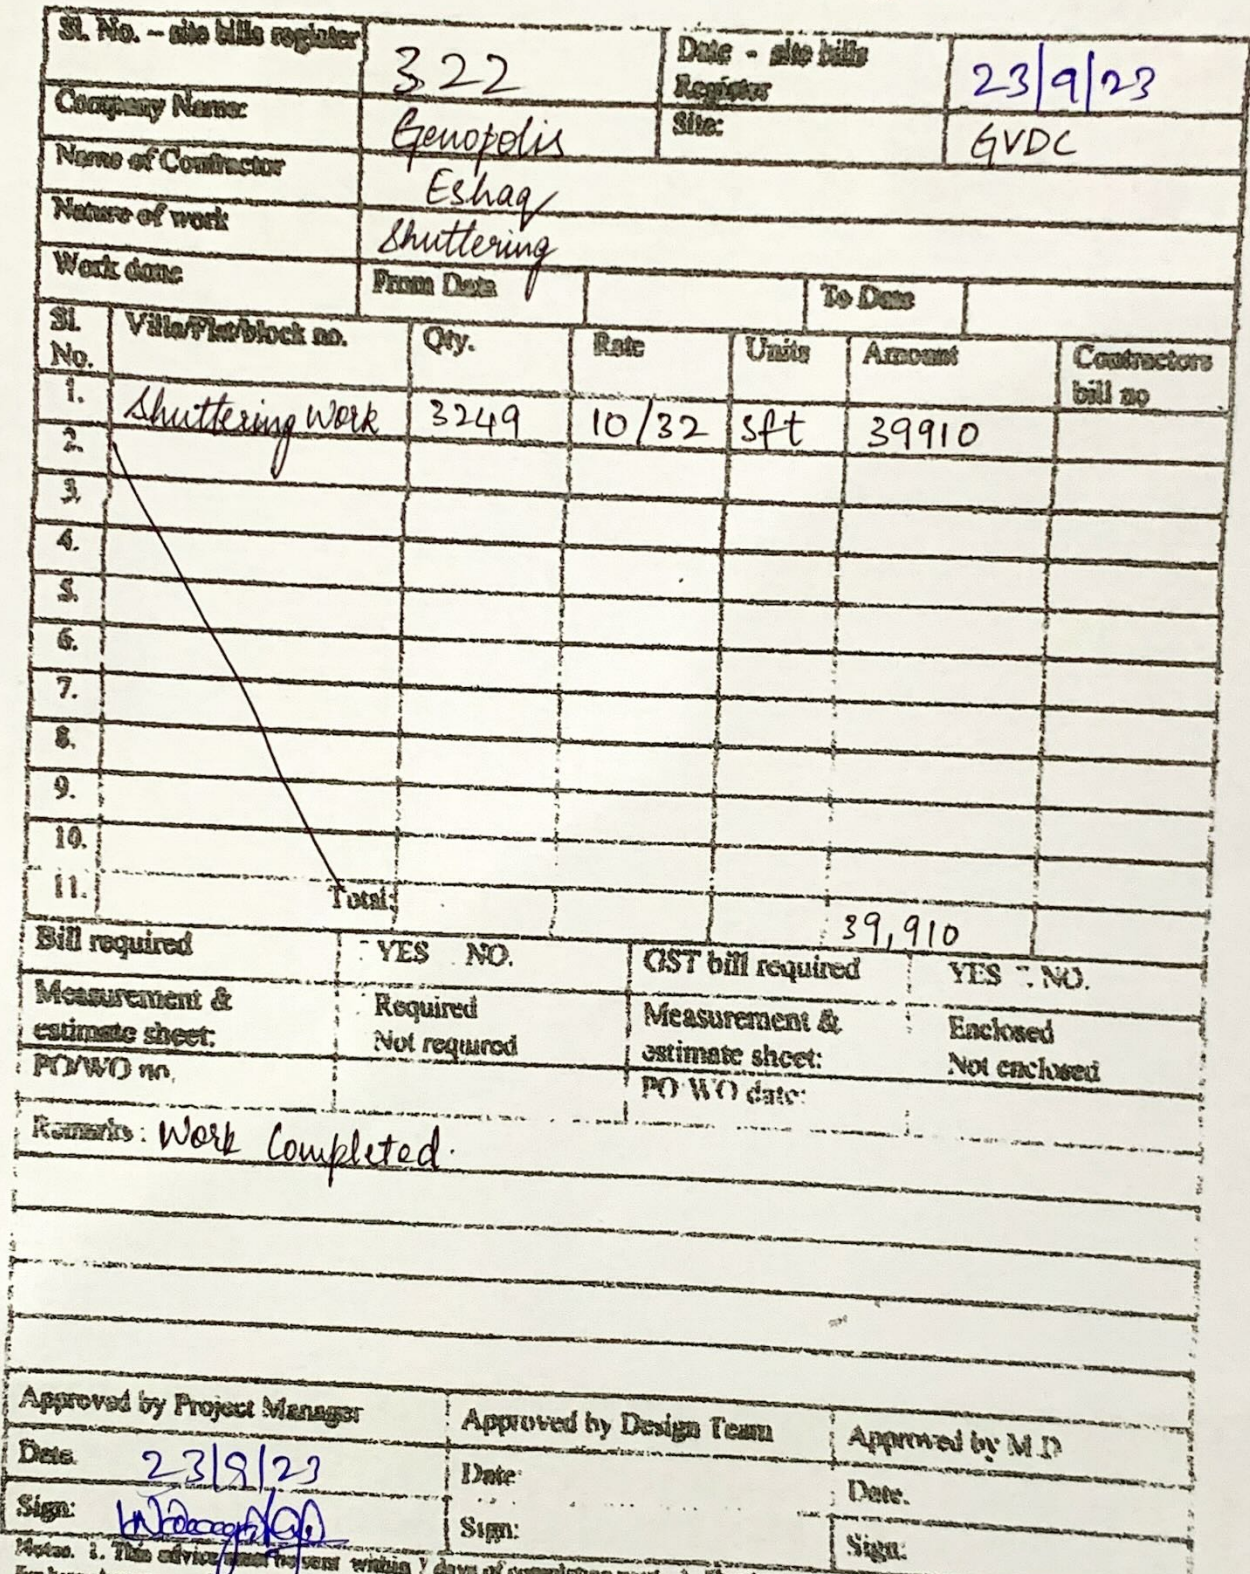 Sl. No. – site bills register 322 Date - site bills Register 23/9/23
Company Name: Genopolis Site: GVDC
Name of Contractor Eshaq
Nature of work Shuttering
Work done From Date To Date
Sl. No. Villa/Flat/block no. Qty. Rate Units Amount Contractors bill no
1. Shuttering Work 3249 10/32 sft 39910
2.
3.
4.
5.
6.
7.
8.
9.
10.
11. Total: 39,910
Bill required YES NO. GST bill required YES NO.
Measurement & estimate sheet: Required Not required Measurement & estimate sheet: Enclosed Not enclosed
PO/WO no. PO WO date:
Remarks: Work Completed.
Approved by Project Manager Approved by Design Team Approved by M.D
Date. 23/9/23 Date: Date.
Sign: Sign: Sign:
Notes. 1. This advice must be sent within 7 days of